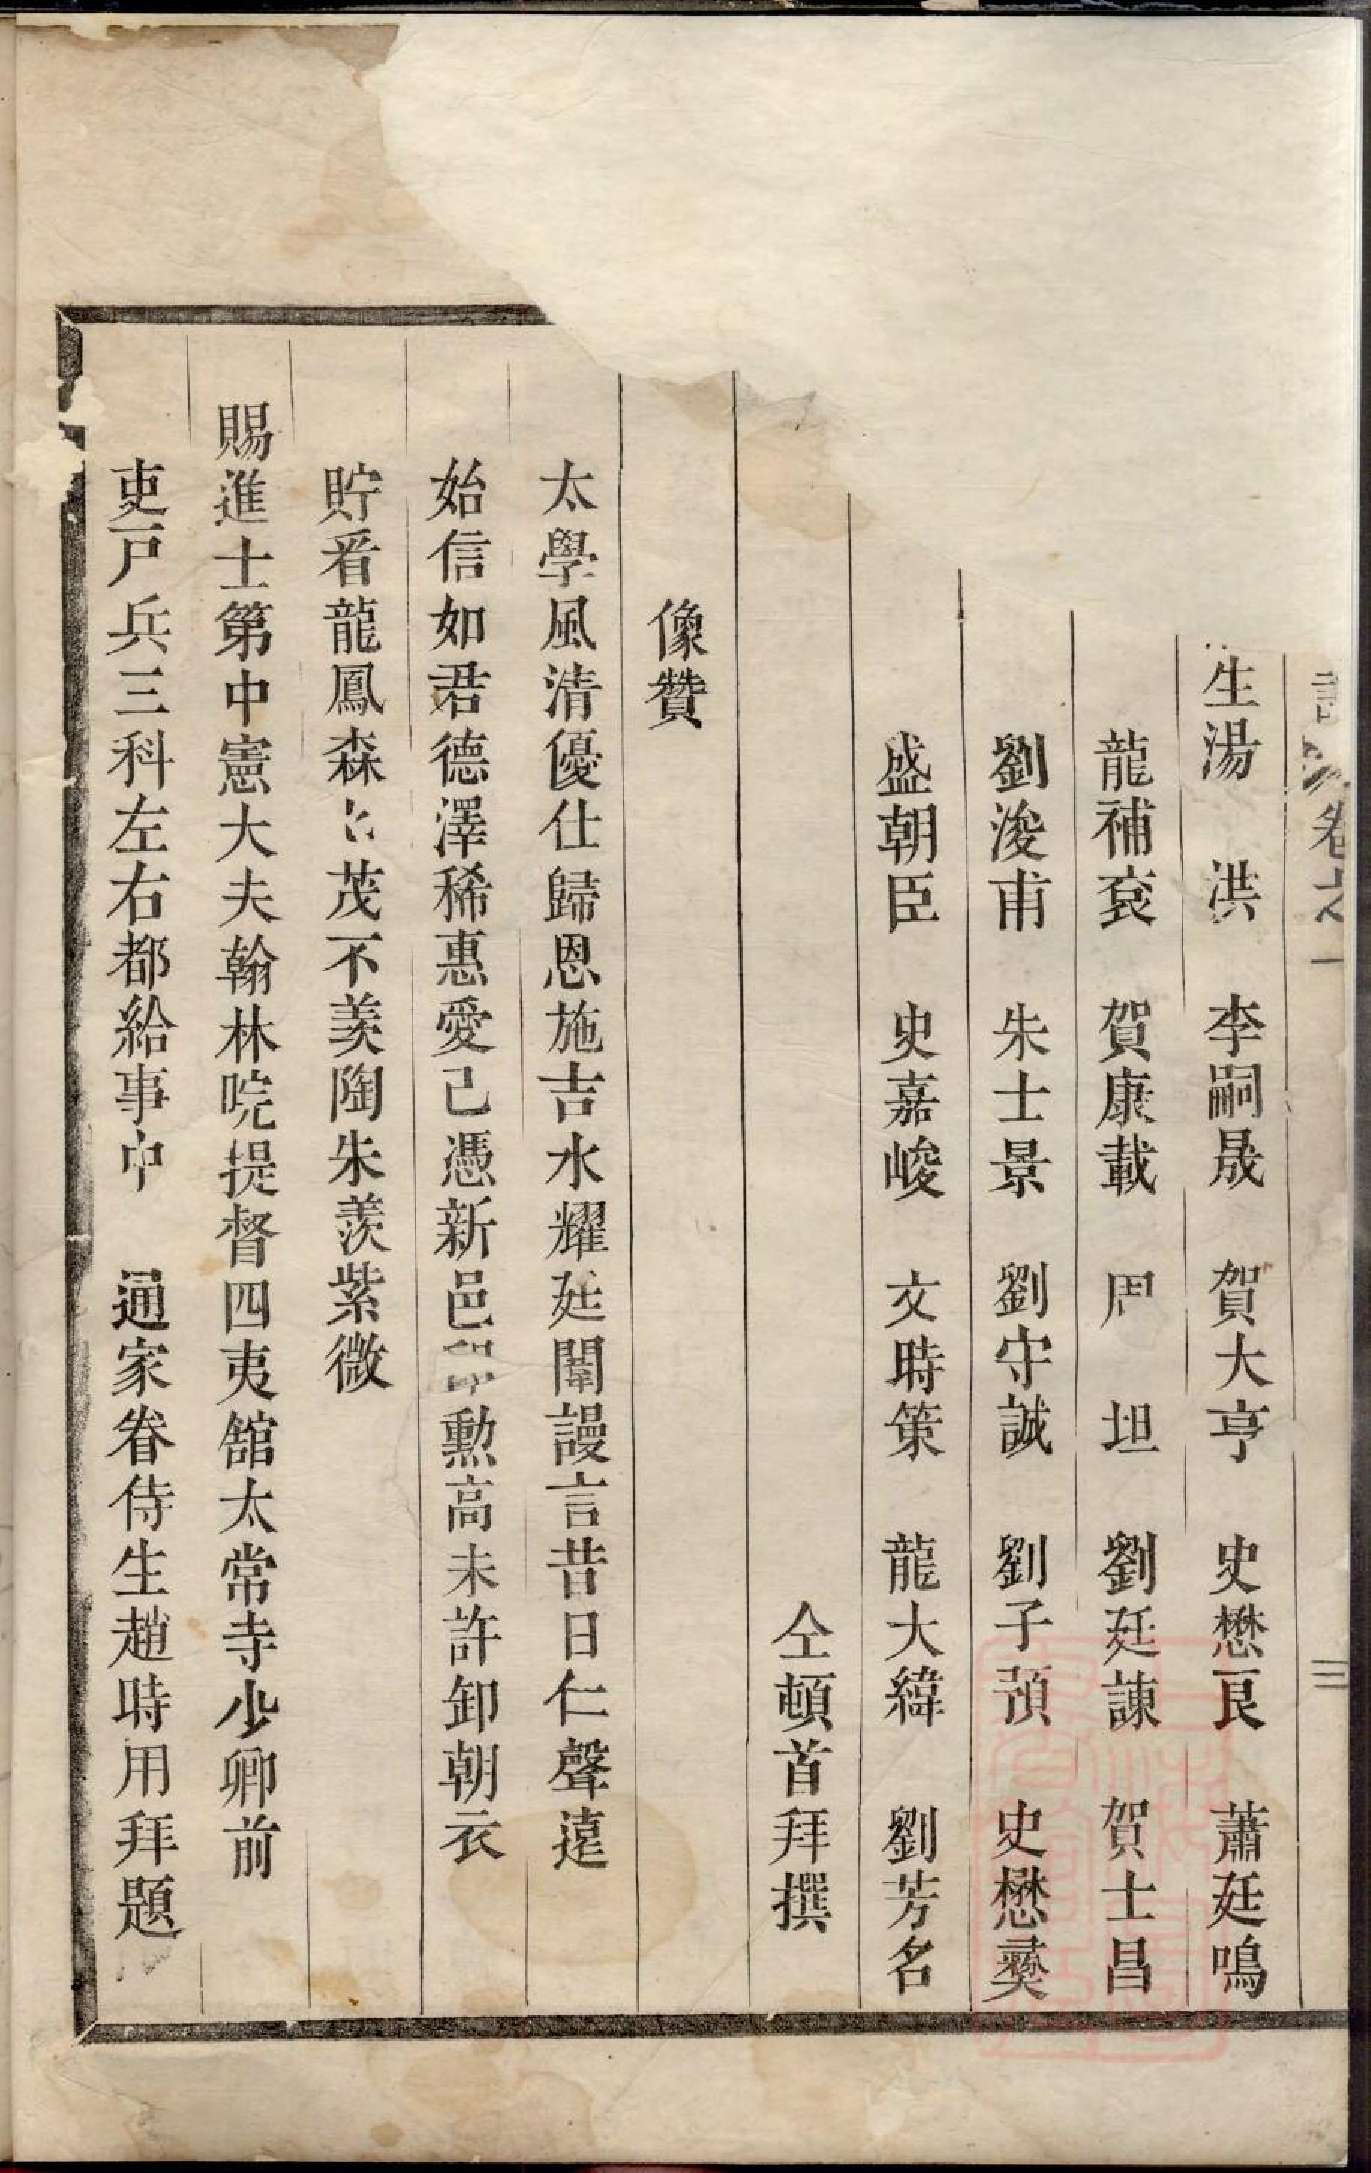 卷之一
三
生湯　洪　李嗣晟　賀大亨　史懋良　蕭廷鳴
龍補袞　賀康載　周　坦　劉廷諫　賀士昌
劉浚甫　朱士景　劉守誠　劉子預　史懋彛
盛朝臣　史嘉峻　文時策　龍大緯　劉芳名
仝頓首拜撰
像贊
太學風清優仕歸恩施吉水耀廷闈謾言昔日仁聲遠
始信如君德澤稀惠愛己憑新邑勳高未許卸朝衣
貯看龍鳳森茂不羨陶朱羨紫微
賜進士第中憲大夫翰林院提督四夷舘太常寺少卿前
吏戸兵三科左右都給事中　通家眷侍生趙時用拜題